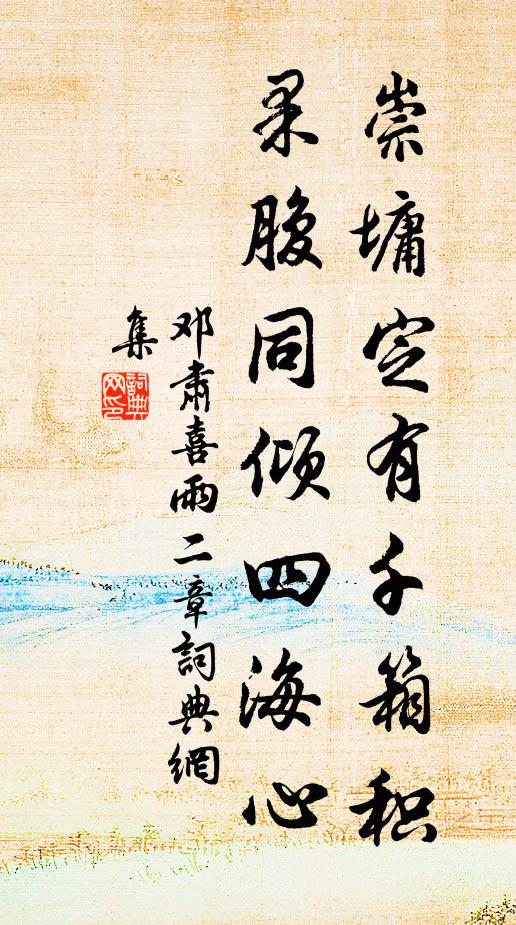 崇墉定有千箱积
果腹同倾四海心
邓肃喜雨二章詞典網
集
詞典网印